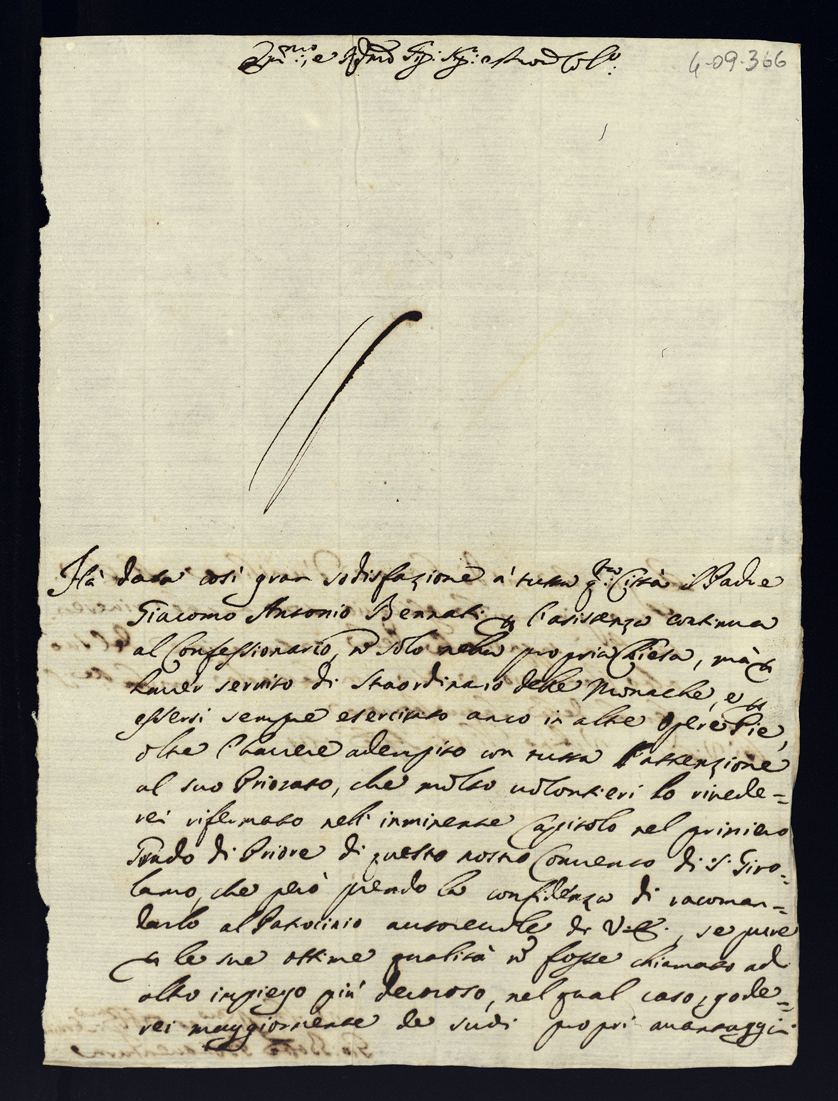 e Sig: Sig:
4-09-366
Hà data così gran sodisfazione à tutta q.ta Città il Padre
Giacomo Antonio Bennati p l'asistenza continua
al Confessionario, nō solo nella propria Chiesa, mà p
hauer seruito di straordinario delle Monache, e p
essersi sempre esercitato anco in altre Opere Pie,
oltre l'hauere adempito con tutta l'attenzione
al suo Priorato, che molto uolontieri lo riuede=
rei rifermato nell'imminente Capitolo nel primiero
Grado di Priore di questo nostro Conuento di S: Giro=
lamo, che però prendo la confidenza di racoman=
darlo al Patrocinio autoreuole di V.E., se pure
p le sue ottime qualità nō fosse chiamato ad
altro impiego più decoroso, nel qual caso, gode=
rei maggiormente de suoi propri auantaggi